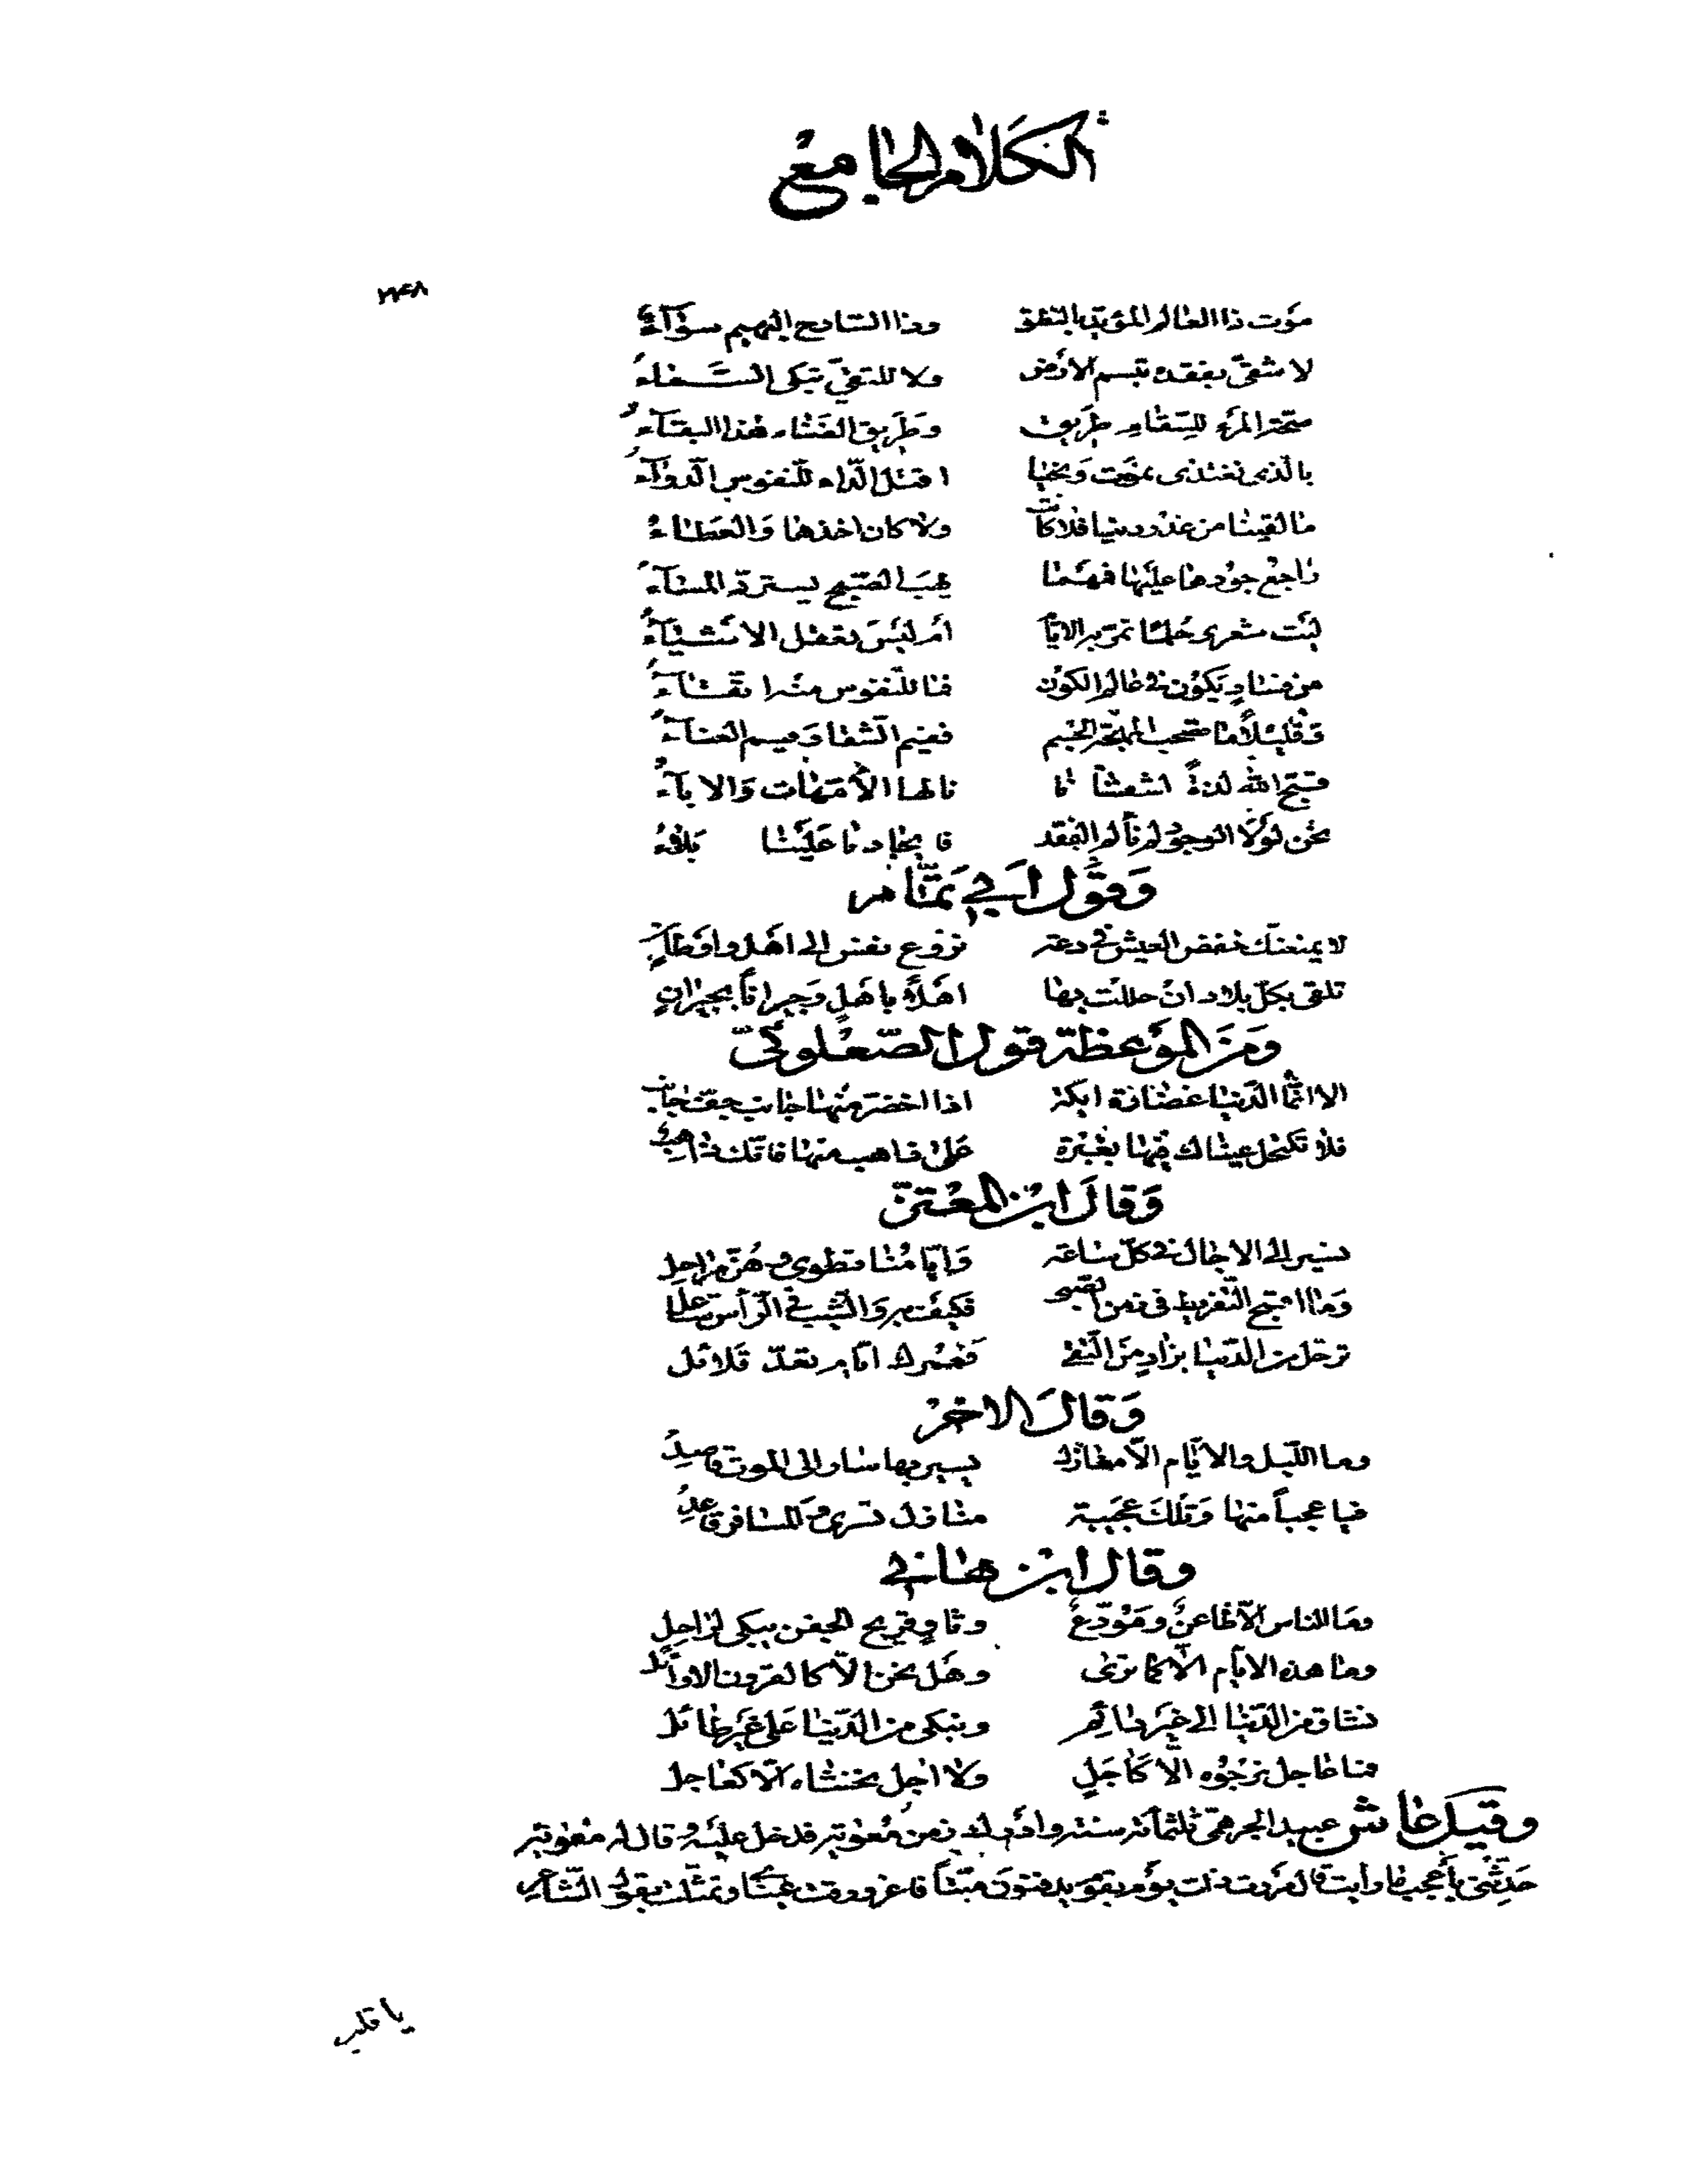 الكلام الجامع
٢٤٨
موت ذا العالم المؤيد بالنطق وذا السارح البهيم سوآء
لا شقى بفقده تبسم الارض ولا للتقي تبكى السماء
صحة المرء للسقام طريق وطريق الفناء هذا البقآء
بالذى نغتذى نموت ونحيا اقتل الداء للنفوس الدوآء
ما لقينا من غدر دنيا فلا كانت ولا كان اخذها والعطاء
راجع جودها عليها فمهما يهب الصبح يسترد المسآء
ليت شعرى حلما تمر به الايا ام ليس تعقل الاشيآء
من فساد يكون في عالم الكون فما للنفوس منه اتقآء
وقليلاً ما تصحب المهجة الجسم ففيم الشقا وفيم العنآء
قبح الله لذة لشقانا نالها الامهات والابآء
نحن لولا الوجود لم نألم الفقد فايجادنا علينا بلاء
وقول ابي تمام
لا يمنعنك خفض العيش في دعة نزوع نفس الى اهل واوطان
تلقى بكل بلاد ان حللت بها اهلاً باهل وجيراناً بجيران
ومن الموعظة قول الصعلوكى
الا انما الدنيا غضارة ايكة اذا اخضر منها جانب جف جانب
فلا تكتحل عيناك فيها بعبرة على ذاهب منها فانك ذاهب
وقال ابن المعتز
نسير الى الاجال في كل ساعة وايامنا تطوى وهن مراحل
وما اقبح التفريط في زمن الصبى فكيف به والشيب في الرأس شاعل
ترحل من الدنيا بزاد من التقى فعمرك ايام تعد قلائل
وقال الاخر
وما الليل والايام الا منازل يسير بها سار الى الموت قاصد
فيا عجباً منها وتلك عجيبة منازل تسرى والمسافر قاعد
وقال ابن هانى
وما الناس الا ظاعن ومودع وثاو قريح الجفن يبكى لراحل
وما هذه الايام الا كما ترى وهل نحن الا كالقرون الاوائل
نساق من الدنيا الى غير دائم ونبكى من الدنيا على غير طائل
فما عاجل نرجوه الا كآجل ولا اجل نخشاه الا كعاجل
وقيل عاش عبيد الجرهمى ثلثمائة سنة وادرك زمن معوية فدخل عليه وقال له معوية
حدثنى بأعجب ما رايت قال مررت ذات يوم بقوم يدفنون ميتاً فاغرورقت عيناى وتمثلت بقول الشاعر
يا قلب